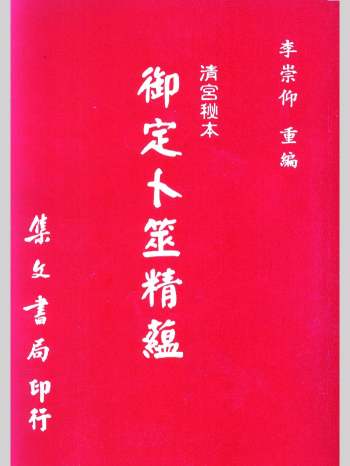 李崇仰 重編
清宮秘本
御定卜筮精蘊
集文書局印行